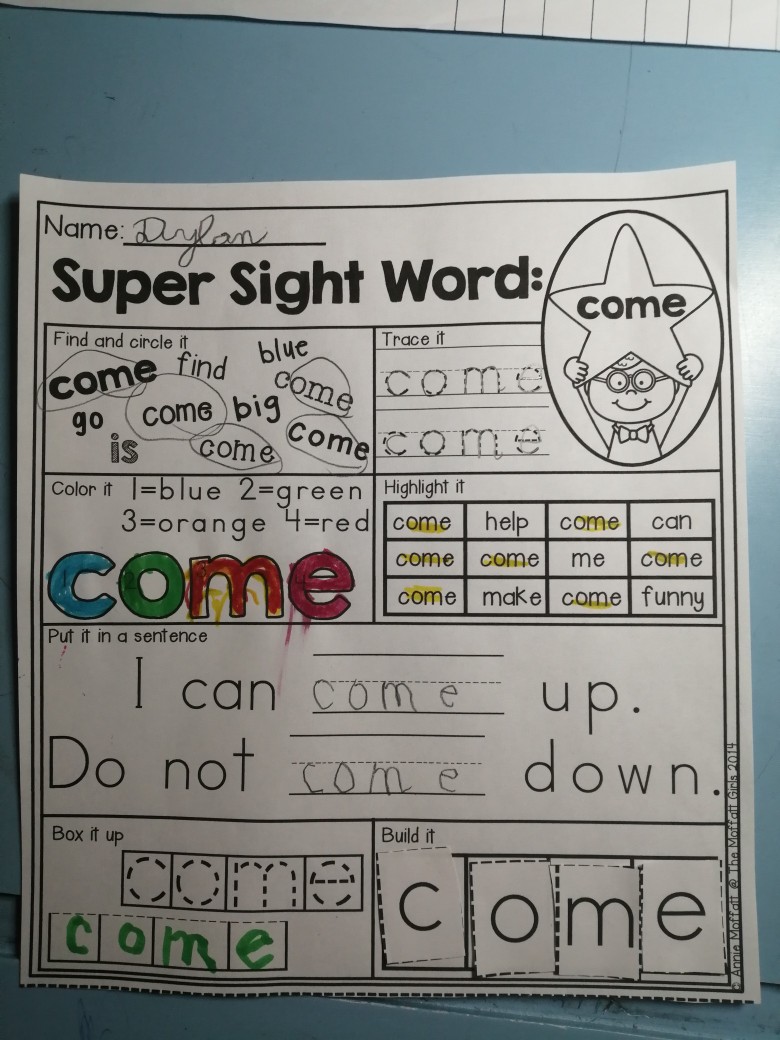 Name: Dylan
Super Sight Word:
come
Find and circle it
come find blue come
go come big
is come come
Trace it
come
come
Color it 1=blue 2=green
3=orange 4=red
come
Highlight it
come help come can
come come me come
come make come funny
Put it in a sentence
I can come up.
Do not come down.
Box it up
come
come
Build it
come
© Annie Moffatt @ The Moffatt Girls 2014